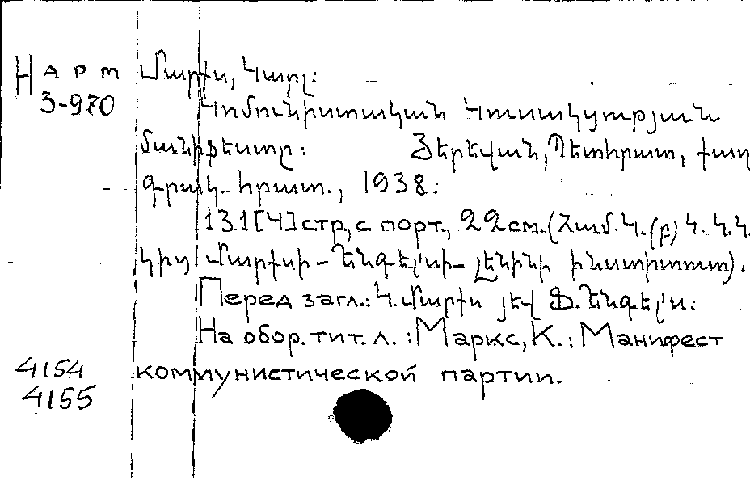 Нарт Մարքս, Կառլ:
3-970 Կոմունիստական Կուսակցության
մանիֆեստը: Յերեվան, Պետհրատ, քաղ
գրակ. հրատ., 1938:
131[4] стр, с порт., 22см. (Համ.Կ.(բ)Կ. Կ.Կ.
կից Մարքսի-Ենգելսի-Լենինի ինստիտուտ).
Перед загл.: Կ.Մարքս յեվ Ֆ.Ենգելս:
На обор. тит. л.: Маркс, К.: Манифест
4154 коммунистической партии.
4155